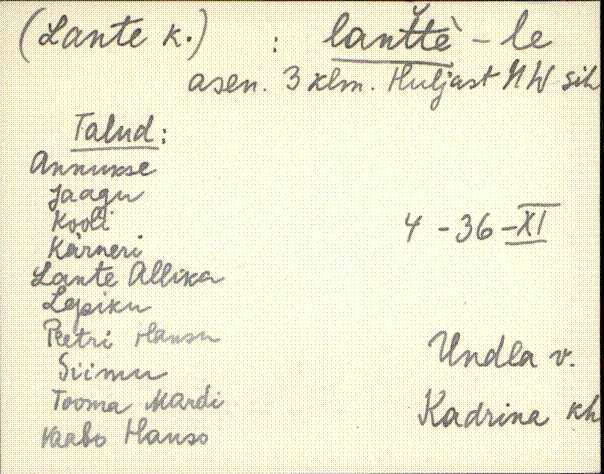 (Lante k.) : lanttè - le
asen. 3 klm. Huljast NW sih
Talud:
Annukse
Jaagu
Kooli
Kärneri
Lante Allika
Lepiku
Peetri Hansu
Siimu
Tooma Mardi
Kaabo Hanso
4 - 36 - XI
Undla v.
Kadrina kh